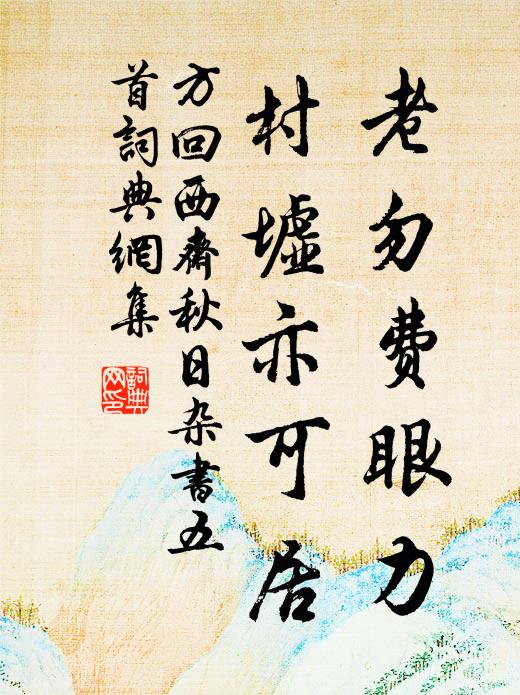 老勿费眼力
村墟亦可居
方回西斋秋日杂书五
首词典网集
词典网印